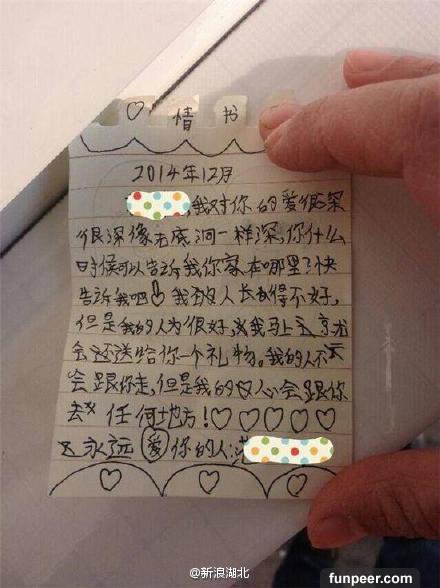 ♡ 情 书
2014年12月
,我对你的爱很深
很深像无底洞一样深,你什么
时候可以告诉我你家在哪里?快
告诉我吧!我本人长得不好,
但是我的人为很好,我马上
会还送给你一个礼物。我的人不
会跟你走,但是我的心会跟你
去 任何地方!♡♡♡♡♡
永远爱你的人:
@新浪湖北
funpeer.com